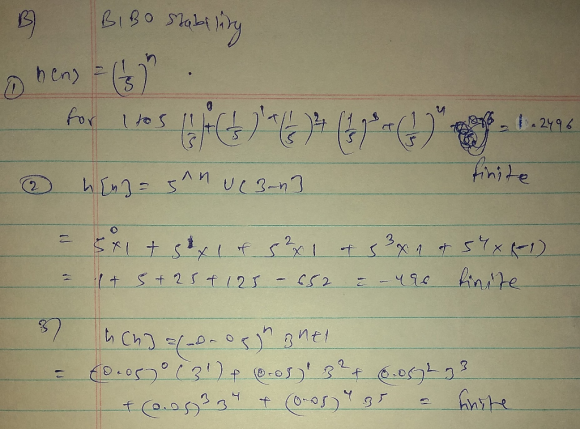 B) BIBO Stability
① h(n) = (1/5)^n .
for 1 to 5 (1/5)^0 + (1/5)^1 + (1/5)^2 + (1/5)^3 + (1/5)^4 = 1.2496
finite
② h[n] = 5^n U(3-n]
= 5^0×1 + 5^1×1 + 5^2×1 + 5^3×1 + 5^4×(-1)
= 1 + 5 + 25 + 125 - 652 = -496 finite
3) h(n) = (-0.05)^n 3^n+1
= (0.05)^0 (3^1) + (0.05)^1 3^2 + (0.05)^2 3^3
+ (0.05)^3 3^4 + (0.05)^4 3^5 = finite